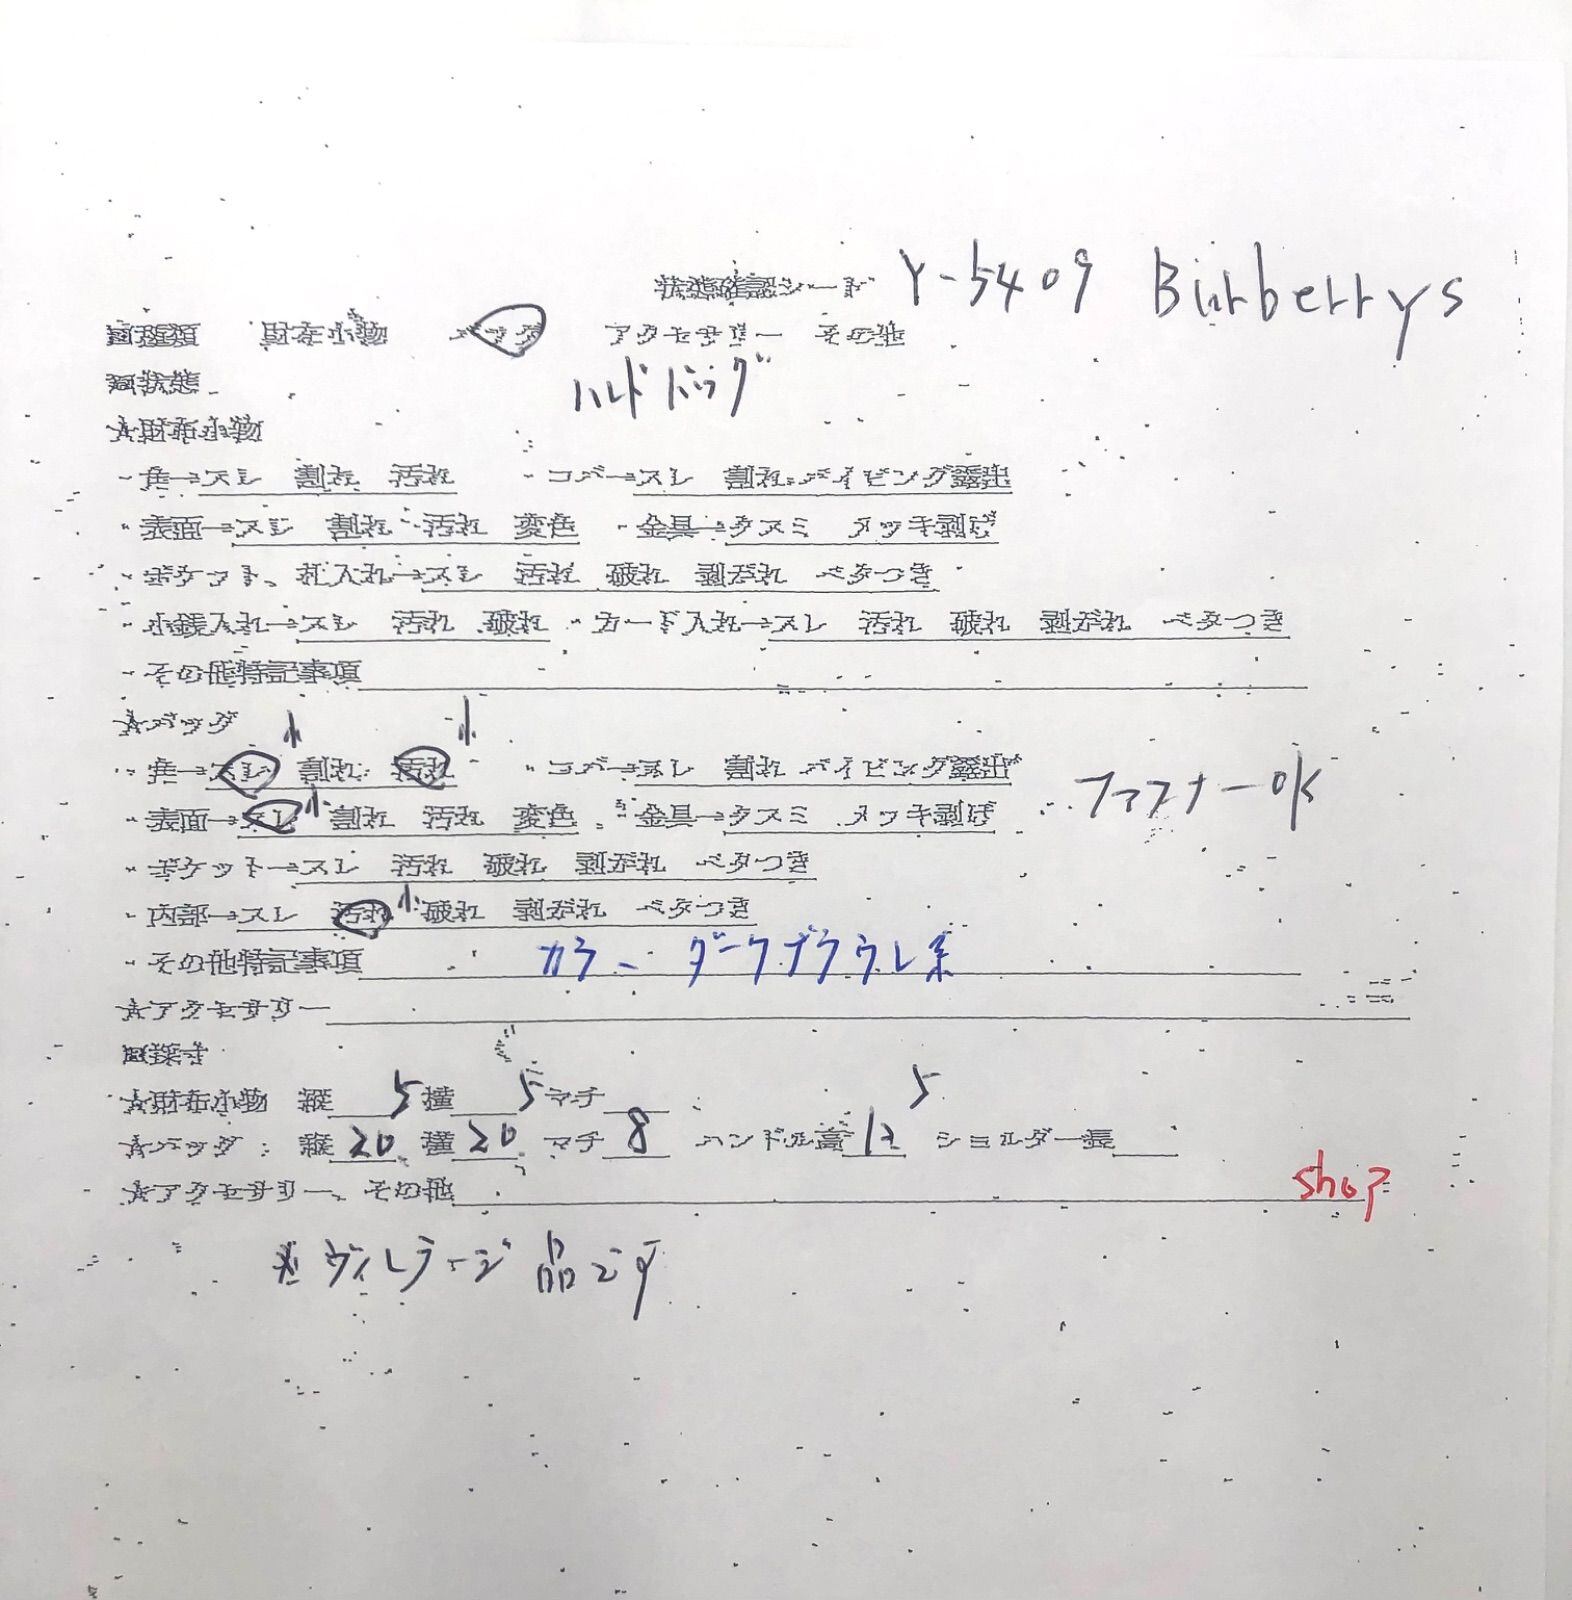 状態確認シート Y-5409 Burberrys
■種類 財布小物 バッグ アクセサリー その他
■状態 ハンドバッグ
★財布小物
・角→スレ 割れ 汚れ ・コバ→スレ 割れ パイピング露出
・表面→スレ 割れ 汚れ 変色 ・金具→クスミ メッキ剥げ
・ポケット、札入れ→スレ 汚れ 破れ 剥がれ ベタつき
・小銭入れ→スレ 汚れ 破れ ・カード入れ→スレ 汚れ 破れ 剥がれ ベタつき
・その他特記事項
★バッグ 小 小
・角→スレ 割れ 汚れ ・コバ→スレ 割れ パイピング露出
・表面→スレ 小 割れ 汚れ 変色 ・金具→クスミ メッキ剥げ ファスナーOK
・ポケット→スレ 汚れ 破れ 剥がれ ベタつき
・内部→スレ 汚れ 小 破れ 剥がれ ベタつき
・その他特記事項 カラー ダークブラウン系
★アクセサリー
■採寸
★財布小物 縦 横 マチ
5 5 5
★バッグ 縦 20 横 20 マチ 8 ハンドル高 12 ショルダー長
★アクセサリー、その他 shop
※ヴィンテージ品です